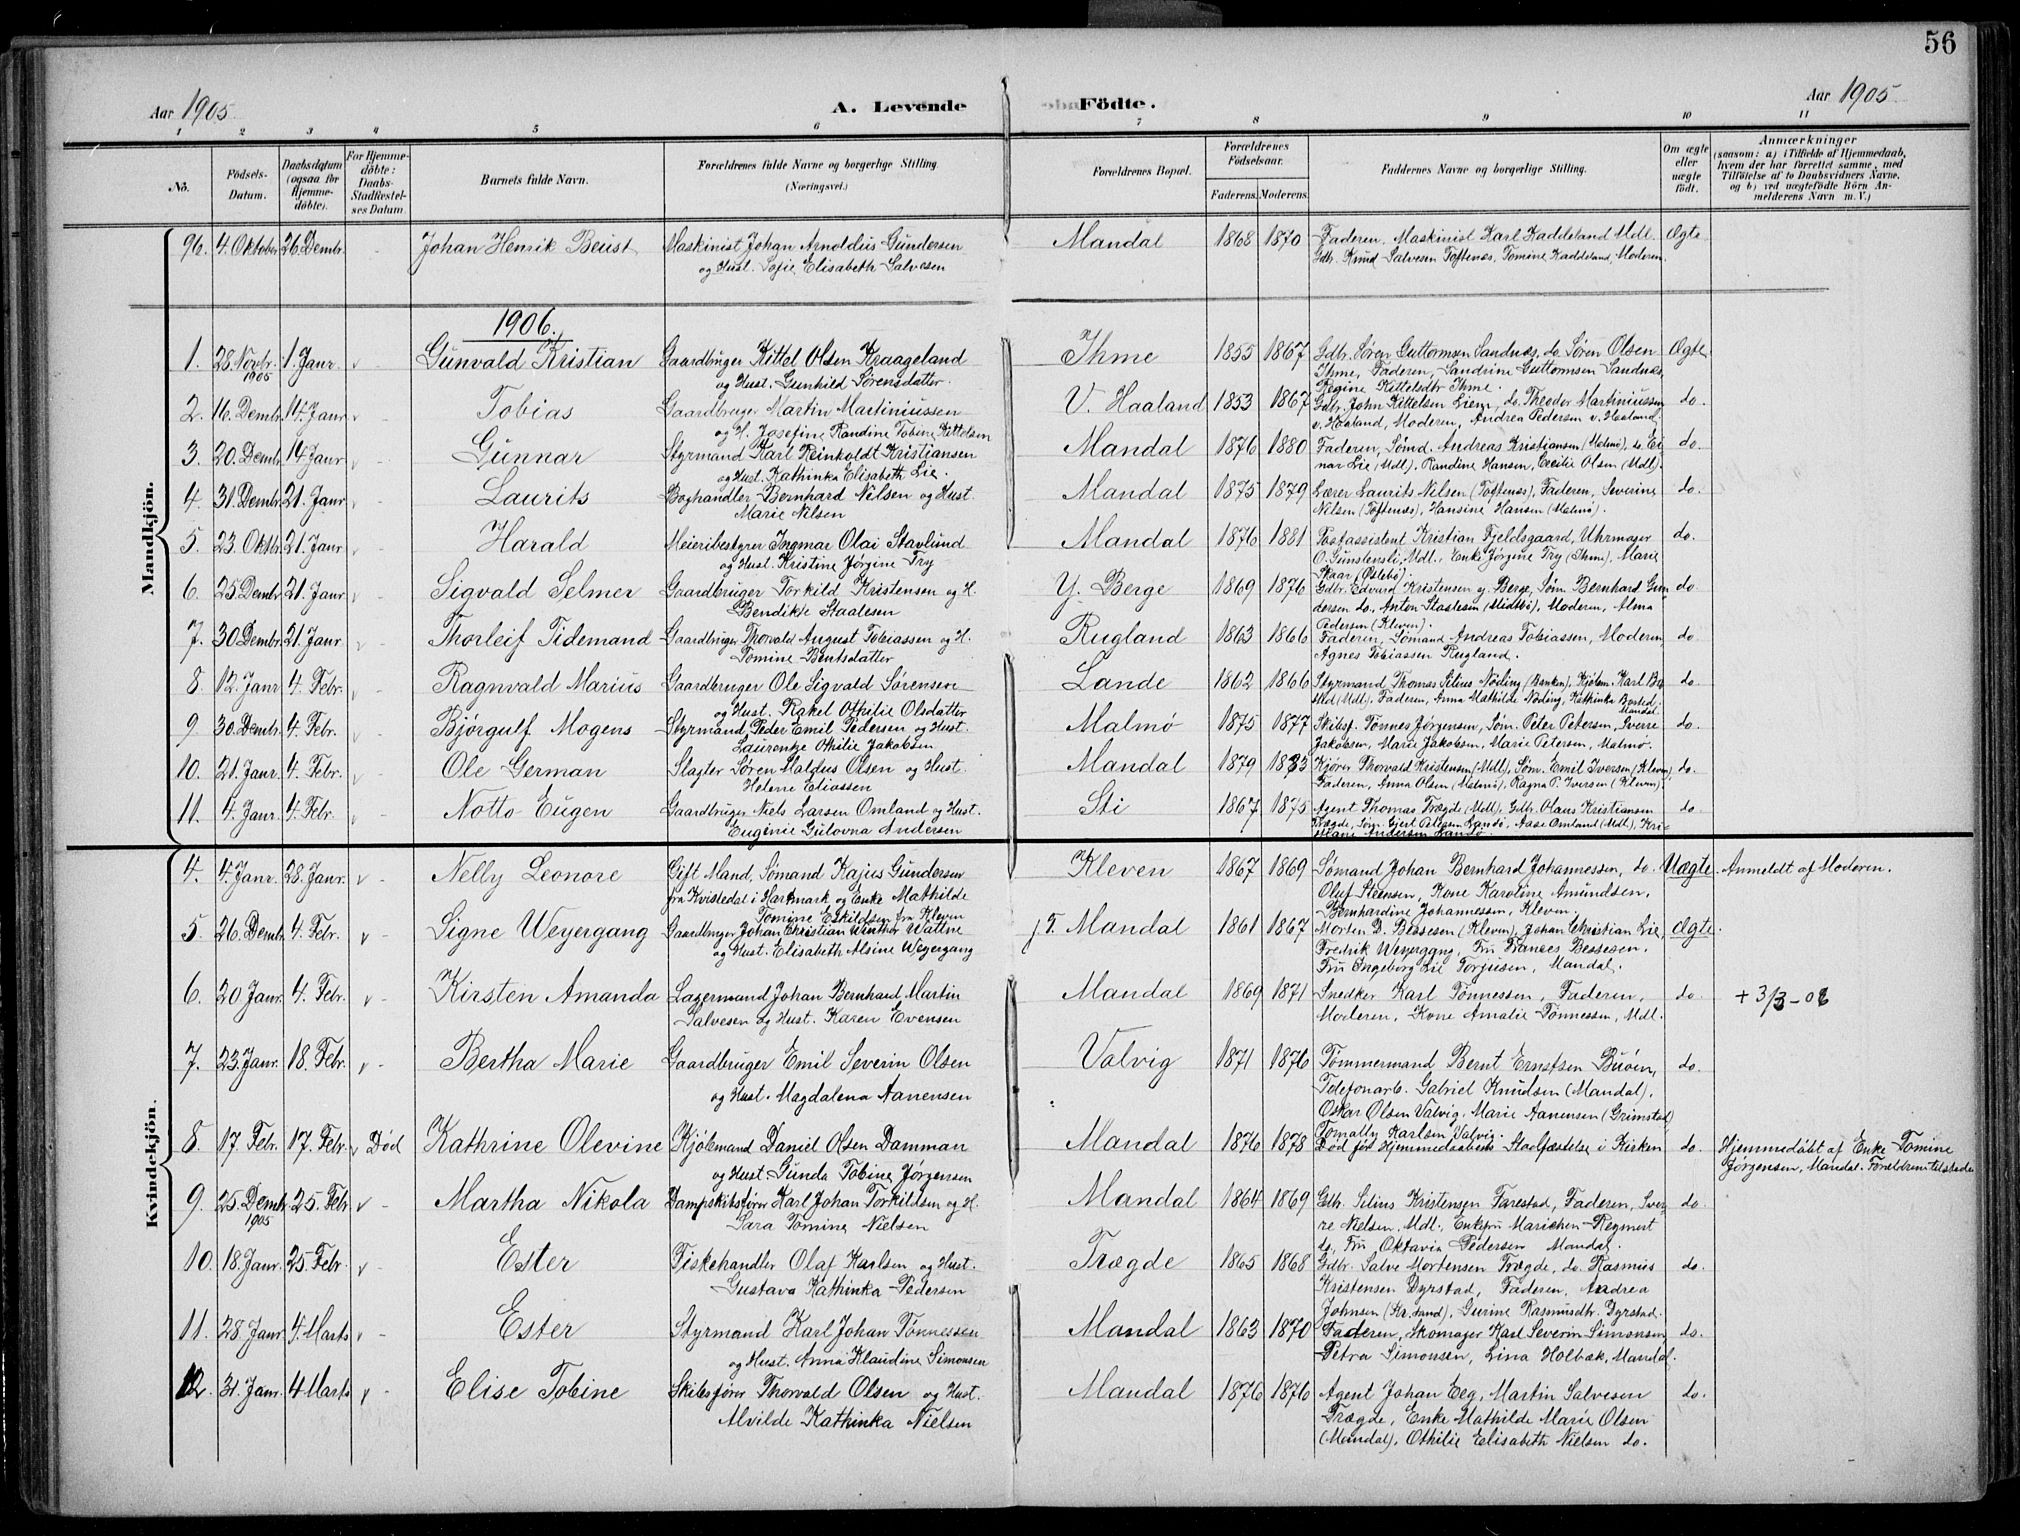 56
Aar 1905
A. Levende
Födte.
Aar 1905
1 2 3 4 5 6 7 8 9 10 11
No. Födsels-Datum. Daabsdatum (ogsaa for Hjemme-döbte). For Hjemme-döbte: Daabs-Stadfæstel-ses Datum. Barnets fulde Navn. Forældrenes fulde Navne og borgerlige Stilling (Næringsvei.) Forældrenes Bopæl. Forældrenes Födselsaar. Faderens. Moderens. Faddernes Navne og borgerlige Stilling. Om ægte eller uægte födt. Anmærkninger (saasom: a) i Tilfælde af Hjemmedaab, hvem der har forrettet samme, med Tilföielse af to Daabsvidners Navne, og b) ved uægtefödte Börn An-melderens Navn m. V.)
Mandkjön.
96. 4. Oktober 26. Dembr. - Johan Henrik Beust Maskinist Johan Arnoldus Gundersen Mandal 1868 1870 Faderen, Maskinist Karl Kaddeland Mdl. Ægte
og Hust. Sofie Elisabeth Salvesen Gdbr. Knud Salvesen Toftenæs, Tomine Kaddeland, Moderen.
1906.
1. 28. Novbr. 1905 1. Janr. v - Gunvald Kristian Gaardbruger Kittel Olsen Kraageland Ihme 1855 1867 Gdbr. Søren Guttormsen Sandnæs, do. Søren Olsen Ægte
og Hust. Gunhild Sørensdatter. Ihme, Faderen, Sandrine Guttormsen Sandnæs,
Regine Kittelsdtr Ihme.
2. 16. Dembr. 14. Janr. v - Tobias Gaardbruger Martin Martiniussen V. Haaland 1853 1867 Gdbr. John Kittelsen Liem, do. Theodor Martiniussen do.
og H. Josefine Randine Tobine Kittelsen v. Haaland, Moderen, Andrea Pedersen v. Haaland.
3. 20. Dembr. 14. Janr. v - Gunnar Styrmand Karl Reinholdt Kristiansen Mandal 1876 1880 Faderen, Sømd. Andreas Kristiansen (Malmø), do. Ei- do.
og Hust. Kathinka Elisabeth Lie. nar Lie (Mdl). Randine Hansen, Cecilie Olsen (Mdl).
4. 31. Dembr. 21. Janr. v - Laurits Boghandler Bernhard Nilsen og Hust. Mandal 1875 1879 Lærer Laurits Nilsen (Toftenæs), Faderen, Severine do.
Marie Nilsen Nilsen (Toftenæs), Hansine Hansen (Malmø).
5. 23. Oktb. 21. Janr. v - Harald Meieribestyrer Ingmar Olai Stavlund Mandal 1876 1881 Postassistent Kristian Fjeldsgaard, Uhrmager do.
og Hust. Kristine Jørgine Try O. Gunstensli, Mdl., Enke Jørgine Try (Ihme), Marie
Skaar (Øslebø).
6. 25. Dembr. 21. Janr. v - Sigvald Selmer Gaardbruger Torkild Kristensen og H. Y. Berge 1869 1876 Gdbr. Edvard Kristensen y. Berge, Søm. Bernhard Gun do.
Bendikte Staalesen dersen do, Anton Staalesen (Midtbø), Moderen, Alma
Pedersen (Kleven).
7. 30. Dembr. 21. Janr. v - Thorleif Tidemand Gaardbruger Thorvald August Tobiassen og H. Rugland 1863 1866 Faderen, Sømand Andreas Tobiassen, Moderen, do
Tomine Bentsdatter Agnes Tobiassen Rugland.
8. 12. Janr. 4. Febr. v - Ragnvald Marius Gaardbruger Ole Sigvald Sørensen Lande 1862 1866 Styrmand Thomas Silius Nöding (Banken), Kjöbm. Karl Bu do
og Hust. Rakel Othilie Olsdatter sted (Mdl). Faderen, Anna Mathilde Nöding, Kathinka Busted, Mandal.
9. 30. Dembr. 4. Febr. v - Bjørgulf Mogens Styrmand Peder Emil Pedersen og Hust. Malmø 1875 1877 Skibsf. Tønnes Jørgensen, Søm. Peter Petersen, Sverre do.
Laurentze Othilie Jakobsen Jakobsen, Marie Jakobsen, Marie Petersen, Malmø.
10. 21. Janr. 4. Febr. v - Ole German Slagter Søren Maldus Olsen og Hust. Mandal 1879 1883 Kjører Thorvald Kristensen (Mdl), Søm. Emil Iversen (Kleven), do.
Helene Eliassen Faderen, Anna Olsen (Malmø), Ragna P. Iversen (Kleven).
11. 4. Janr. 4. Febr. v - Notto Eugen Gaardbruger Niels Larsen Omland og Hust. Sti 1867 1875 Agent Thomas Trægde (Mdl), Gdbr. Olaus Kristiansen do
Eugenie Gulovna Andersen Trægde, Søm. Gjert Petersen Landø, Aase Omland (Mdl), Kri-
stiane Andersen Landø.
Kvindekjön.
4. 4. Janr. 28. Janr. v - Nelly Leonore Gift Mand, Sømand Kajus Gundersen Kleven 1867 1869 Sømand Johan Bernhard Johannessen, do. Uægte. Anmeldt af Moderen.
fra Kvisledal i Hartmark og Enke Mathilde Oluf Steensen, Kone Karoline Amundsen,
Tomine Eskildsen fra Kleven Bernhardine Johannessen, Kleven.
5. 26. Dembr. 4. Febr. v - Signe Weyergang Gaardbruger Johan Christian Winther Wattne f. T. Mandal 1861 1867 Morten D. Bessesen (Kleven), Johan Christian Lie, Ægte.
og Hust. Elisabeth Alsine Weyergang Fredrik Weyergang, Fru Frances Bessesen,
Fru Ingeborg Lie Torjusen, Mandal.
6. 20. Janr. 4. Febr. v - Kirsten Amanda Lagermand Johan Bernhard Martin Mandal 1869 1871 Snedker Karl Tønnessen, Faderen, do. + 3/3-08
Salvesen og Hust. Karen Evensen Moderen, Kone Amalie Tønnessen, Mdl.
7. 23. Janr. 18. Febr. v - Bertha Marie Gaardbruger Emil Severin Olsen Valvig 1871 1876 Tømmermand Bernt Ernstsen Buøen, do.
og Hust. Magdalena Aanensen Telefonarb. Gabriel Knudsen (Mandal),
Oskar Olsen Valvig, Marie Aanensen (Grimstad)
Tomally Karlsen Valvig.
8. 17. Febr. 17. Febr. v Død Kathrine Olevine Kjøbmand Daniel Olsen Damman Mandal 1876 1878 Død før Hjemmedaabens Stadfæstelse i Kirken do. Hjemmedøbt af Enke Tomine
og Hust. Gunda Tobine Jørgensen Jørgensen, Mandal. Forældrene tilstede
9. 25. Dembr. 1905 25. Febr. v - Martha Nikola Dampskibsfører Karl Johan Torkildsen og H. Mandal 1864 1869 Gdbr. Silius Kristensen Farestad, Faderen, Sver- do.
Sara Tomine Nielsen re Nielsen, Mdl, Enkefru Marichen Regmert
do, Fru Oktavia Pedersen Mandal.
10. 18. Janr. 25. Febr. v - Ester Fiskehandler Olaf Karlsen og Hust. Trægde 1865 1868 Gdbr. Salve Mortensen Trægde, do. Rasmus do.
Gustava Kathinka Pedersen Kristensen Dyrstad, Faderen, Andrea
Johnsen (Kr.sand), Gurine Rasmusdtr. Dyrstad.
11. 28. Janr. 4. Marts v - Ester Styrmand Karl Johan Tønnessen Mandal 1863 1870 Faderen, Skomager Karl Severin Simonsen do.
og Hust. Anna Klaudine Simonsen Petra Simonsen, Lina Holbæk, Mandal.
12. 31. Janr. 4 Marts v - Elise Tobine Skibsfører Thorvald Olsen og Hust. Mandal 1876 1876 Agent Johan Eeg, Martin Salvesen do.
Alvilde Kathinka Nielsen Trægde, Enke Mathilde Marie Olsen
(Mandal), Othilie Elisabeth Nielsen do.